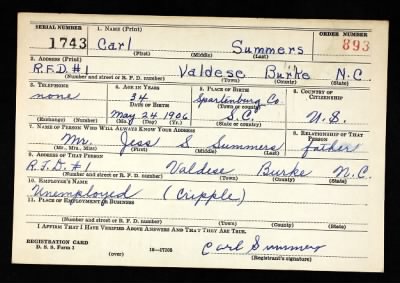 SERIAL NUMBER 1. NAME (Print) ORDER NUMBER
1743 Carl Summers 893
(First) (Middle) (Last)
2. ADDRESS (Print)
R.F.D. #1 Valdese Burke N.C.
(Number and street or R. F. D. number) (Town) (County) (State)
3. TELEPHONE 4. AGE IN YEARS 5. PLACE OF BIRTH 6. COUNTRY OF CITIZENSHIP
none 34 Spartenburg Co
DATE OF BIRTH (Town or county)
May 24 1906 S.C. U.S.
(Exchange) (No.) (Mo.) (Day) (Yr.) (State or country)
7. NAME OF PERSON WHO WILL ALWAYS KNOW YOUR ADDRESS 8. RELATIONSHIP OF THAT PERSON
Mr. Jess S Summers father
(Mr., Mrs., Miss) (First) (Middle) (Last)
9. ADDRESS OF THAT PERSON
R.F.D. #1 Valdese Burke N.C.
(Number and street or R. F. D. number) (Town) (County) (State)
10. EMPLOYER'S NAME
Unemployed (Cripple)
11. PLACE OF EMPLOYMENT OR BUSINESS
(Number and street or R. F. D. number) (Town) (County) (State)
I AFFIRM THAT I HAVE VERIFIED ABOVE ANSWERS AND THAT THEY ARE TRUE.
REGISTRATION CARD
D. S. S. Form 1 (over) 16—17105 Carl Summers
(Registrant's signature)